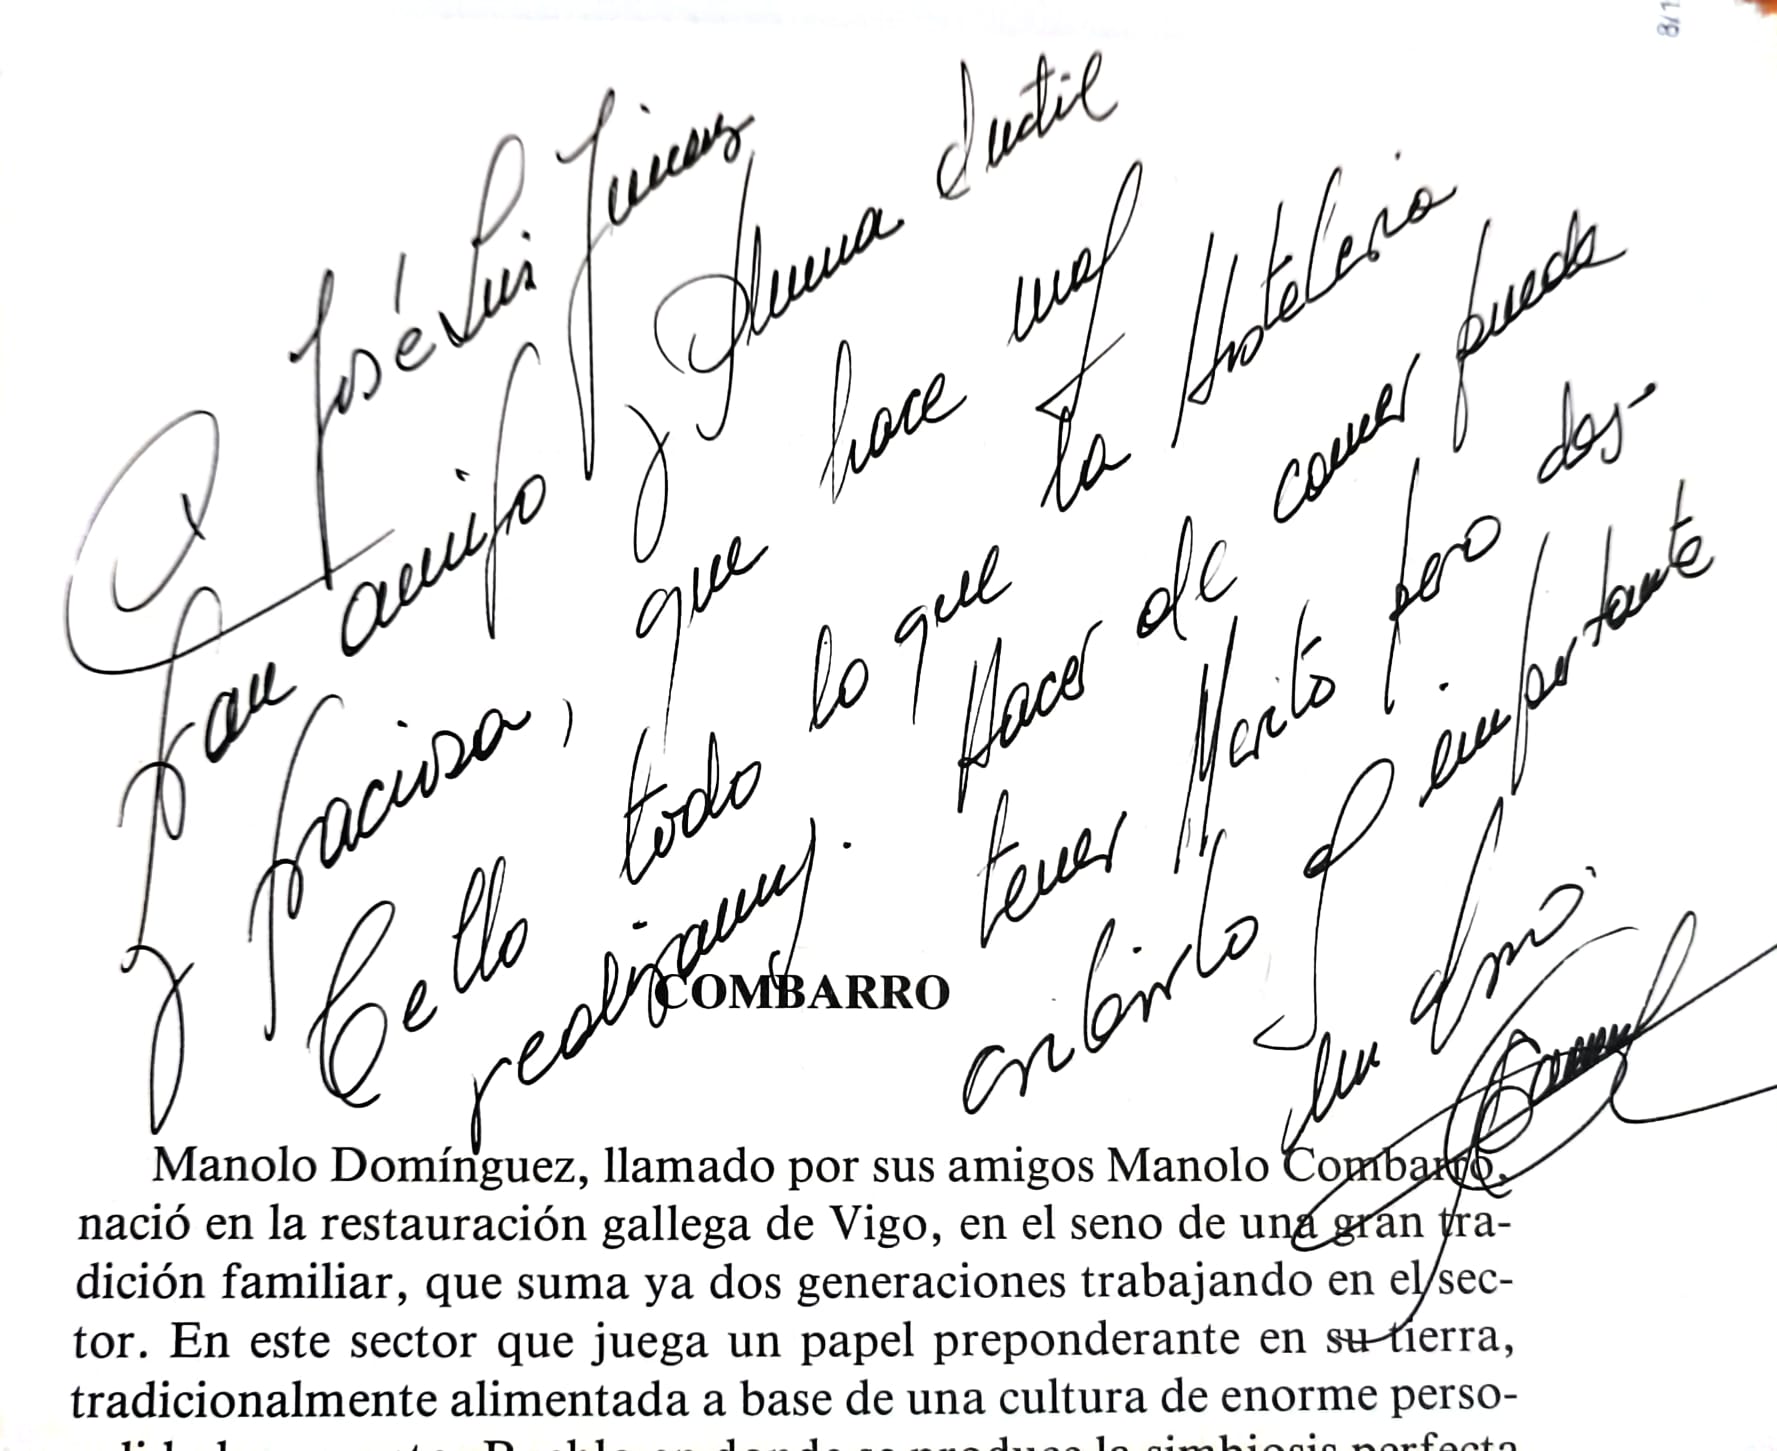 A José Luis Jimenez
gran amigo y pluma ductil
y graciosa, que hace mas
bello todo lo que la Hosteleria
realizamos. Hacer de comer puede
tener Merito pero des-
cribirlo es importante
COMBARRO
Manolo Domínguez, llamado por sus amigos Manolo Combarro,
nació en la restauración gallega de Vigo, en el seno de una gran tra-
dición familiar, que suma ya dos generaciones trabajando en el sec-
tor. En este sector que juega un papel preponderante en su tierra,
tradicionalmente alimentada a base de una cultura de enorme perso-
en donde se produce la simbiosis perfecta